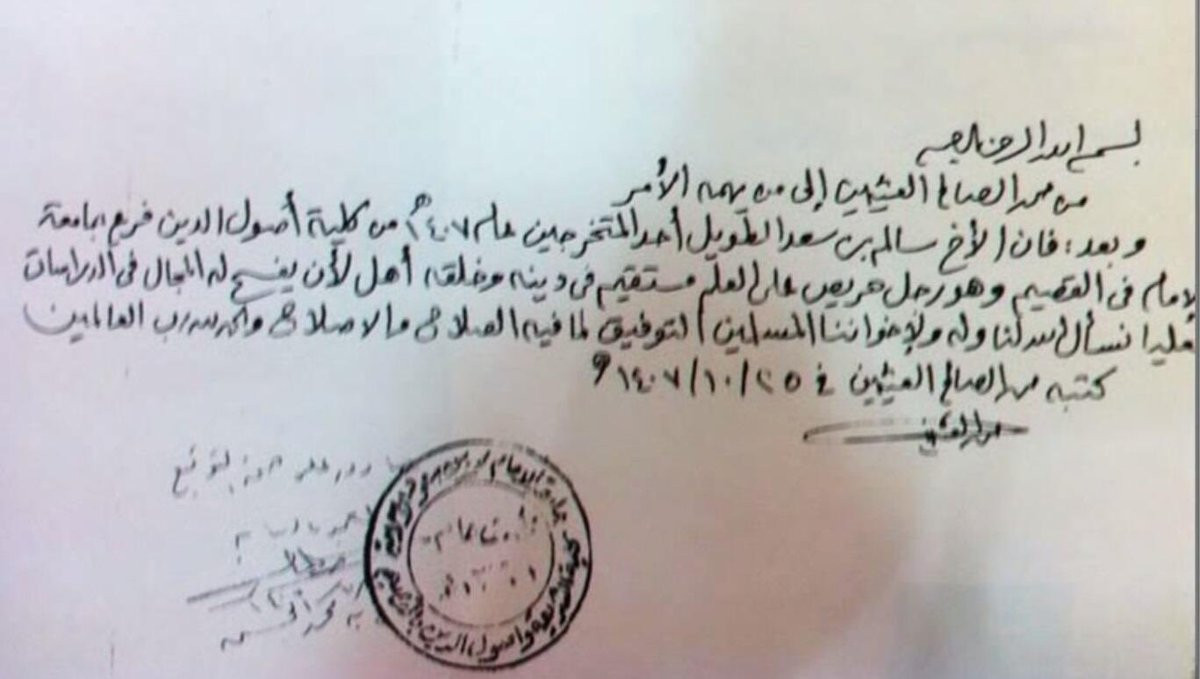 بسم الله الرحمن الرحيم
من محمد الصالح العثيمين إلى من يهمه الأمر
وبعد: فإن الأخ سالم بن سعد الطويل أحد المتخرجين عام ١٤٠٧هـ من كلية أصول الدين فرع جامعة
الإمام في القصيم وهو رجل حريص على العلم مستقيم في دينه وخلقه أهل لأن يفسح له المجال في الدراسات
العليا نسأل الله لنا وله ولإخواننا المسلمين التوفيق لما فيه الصلاح والاصلاح والحمد لله رب العالمين
كتبه محمد الصالح العثيمين في ٢٥/١٠/١٤٠٧هـ
محمد العثيمين
جامعة الإمام محمد بن سعود الإسلامية
الشريعة وأصول الدين بالقصيم
التوقيع